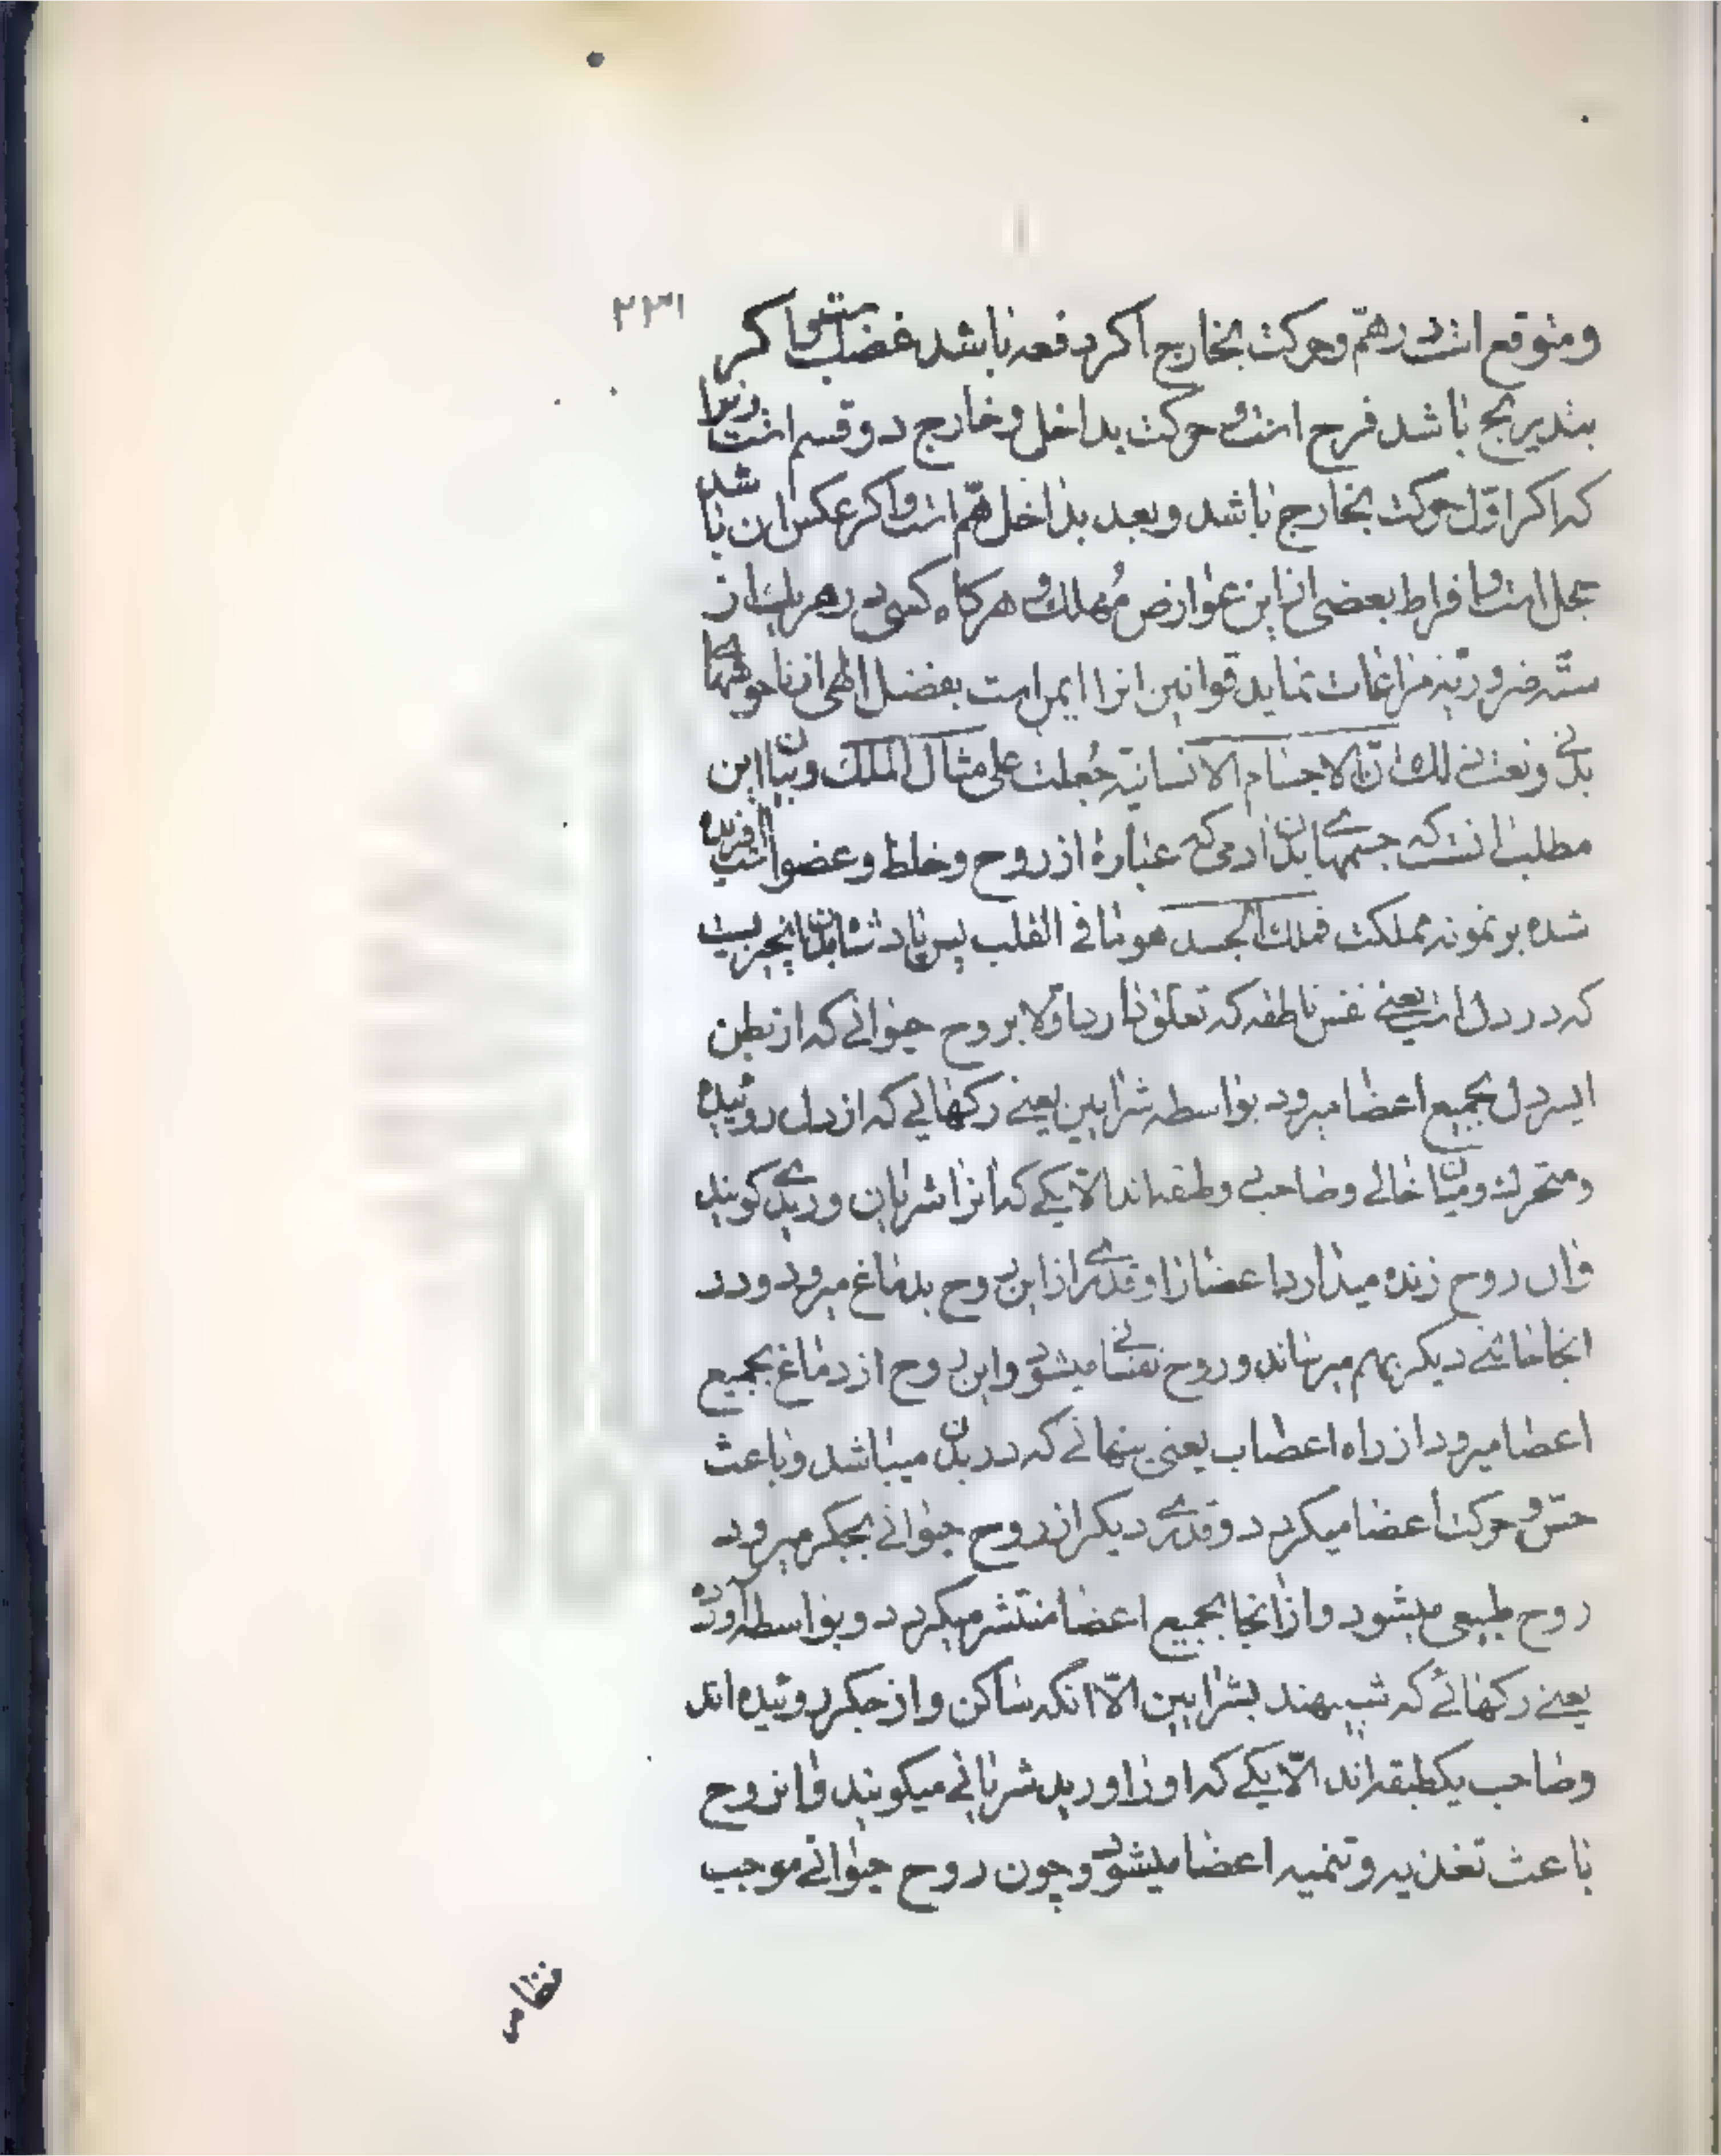 ۲۳۱
ومتوقع است در همّ وحرکت بخارج اکر دفعه باشد غضب است و اکر
بتدریج باشد فرح است و حرکت بداخل و خارج دو قسم است زیرا
که اکر اوّل حرکت بخارج باشد و بعد بداخل همّ است و اکر عکس ان باشد
خجل است و افراط بعضی از این عوارض مُهلک و هرکاه کسی در هر یک از
ستّه ضروریّه مراعات نماید قوانین انرا ایمن است بفضل الهی از ناخوشیهای
بدنی ان الاجسام الانسانیّه جُعلت علی مثال الملک وبیان این
مطلب انست که جسمهای بدن ادمی که عباره از روح و خلط و عضو است افریده
شده بر نمونه مملکت فملک الجسد هو ما فی القلب پس پادشاه بدن انچیزیست
که در دل است یعنی نفس ناطقه که تعلق دارد اوّلا بروح حیوانی که از بطن
ایسر دل بجمیع اعضا میرود بواسطه شرایین یعنی رکهایی که از دل روئیده
ومتحرک و میان خالی و صاحب دو طبقه اند الّا یکی که انرا شریان وریدی کویند
و ان روح زنده میدارد اعضا را و قدری از این روح بدماغ میرود و در
انجا خاصّتی دیکر بهم میرساند و روح نفسانی میشود و این روح از دماغ بجمیع
اعضا میرود از راه اعصاب یعنی پیهائی که در بدن میباشد و باعث
حسّ و حرکت اعضا میکردد و قدری دیکر از روح حیوانی بجکر میرود
روح طبیعی میشود و از انجا بجمیع اعضا منتشر میکردد و بواسطه آورده
یعنی رکهائی که شبیهند بشرایین الّا انکه ساکن و از جکر روئیده اند
وصاحب یکطبقه اند الّا یکی که او را ورید شریانی میکویند و ان روح
باعث تغذیه و تنمیه اعضا میشود و چون روح حیوانی موجب